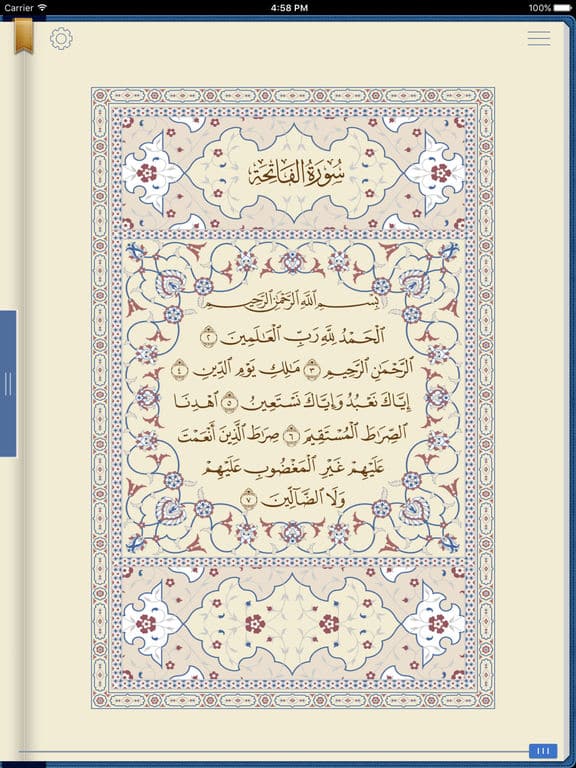 Carrier 4:58 PM 100%
سُورَةُ الفَاتِحَةِ
بِسْمِ ٱللَّهِ ٱلرَّحْمَٰنِ ٱلرَّحِيمِ
ٱلْحَمْدُ لِلَّهِ رَبِّ ٱلْعَٰلَمِينَ ٢
ٱلرَّحْمَٰنِ ٱلرَّحِيمِ ٣ مَٰلِكِ يَوْمِ ٱلدِّينِ ٤
إِيَّاكَ نَعْبُدُ وَإِيَّاكَ نَسْتَعِينُ ٥ ٱهْدِنَا
ٱلصِّرَٰطَ ٱلْمُسْتَقِيمَ ٦ صِرَٰطَ ٱلَّذِينَ أَنْعَمْتَ
عَلَيْهِمْ غَيْرِ ٱلْمَغْضُوبِ عَلَيْهِمْ
وَلَا ٱلضَّآلِّينَ ٧